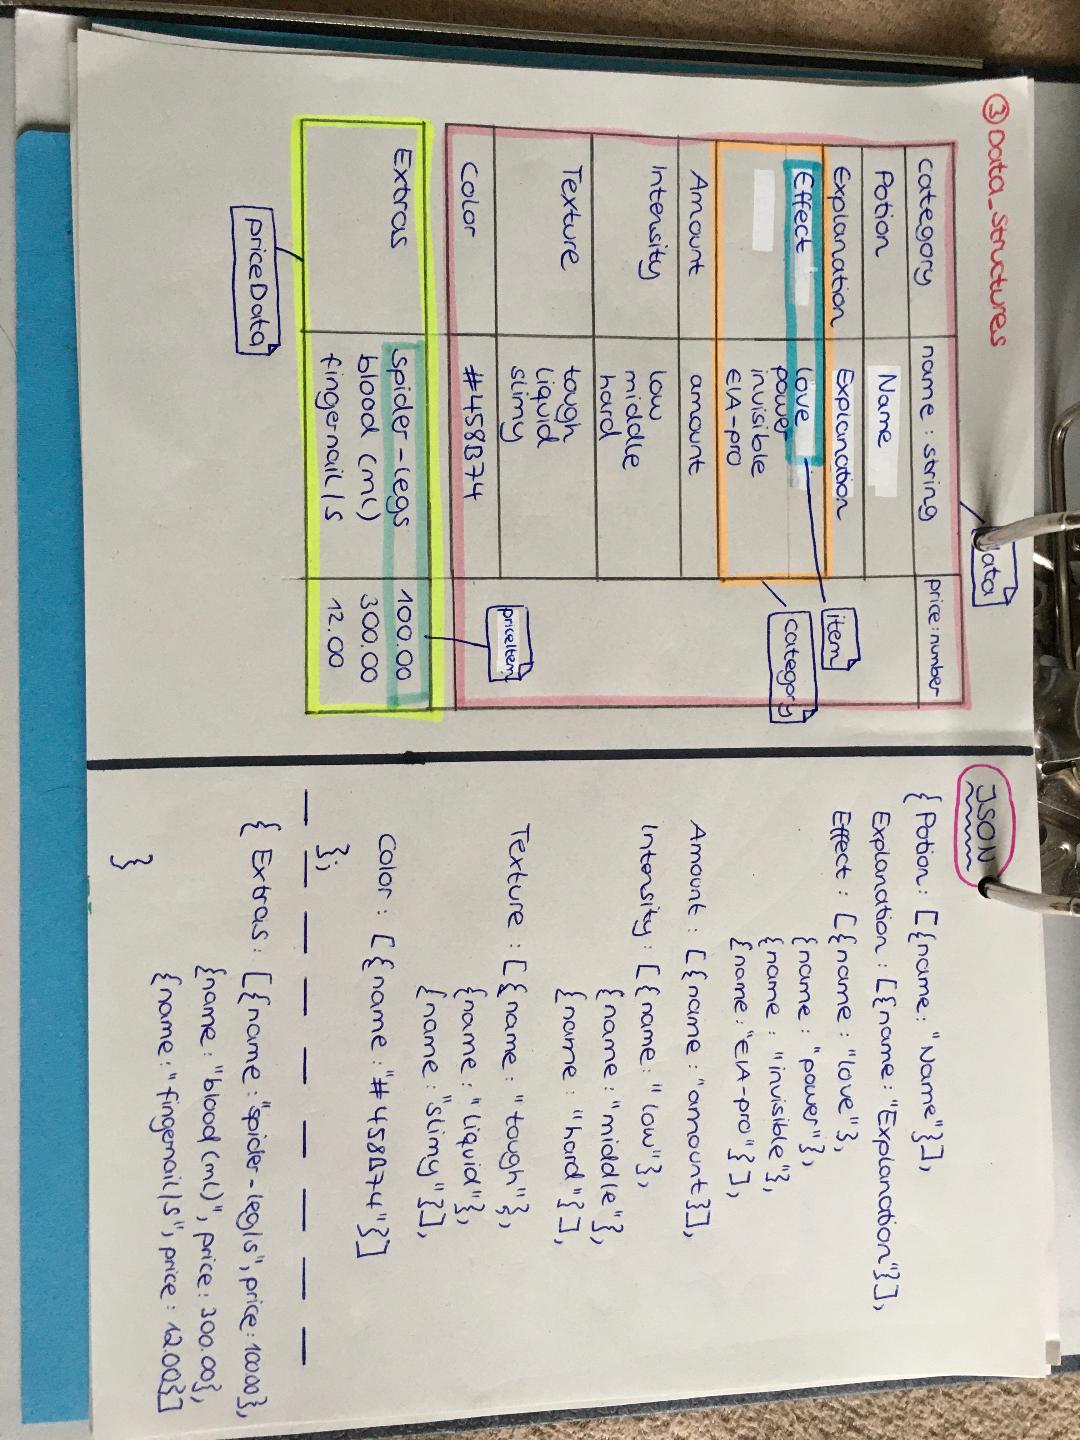 ③ Data_Structures
data
category name : string price : number
Potion Name
Explanation Explanation
item
Effect love
category
power
invisible
EIA-pro
Amount amount
Intensity low
middle
hard
Texture tough
liquid
slimy
priceItem
Color #458B74
Extras spider-legs 100.00
blood (ml) 300.00
fingernail/s 12.00
priceData
JSON
{ Potion : [{name : "Name"}],
Explanation : [{name : "Explanation"}],
Effect : [{name : "love"},
{name : "power"},
{name : "invisible"},
{name : "EIA-pro"}],
Amount : [{name : "amount}],
Intensity : [{name : "low"},
{name : "middle"},
{name : "hard"}],
Texture : [{name : "tough"},
{name : "liquid"},
{name : "slimy"}],
Color : [{name : "#458B74"}]
};
{ Extras : [{name : "spider-leg/s", price : 100.00},
{name : "blood (ml)", price : 300.00},
{name : "fingernail/s", price : 12.00}]
}